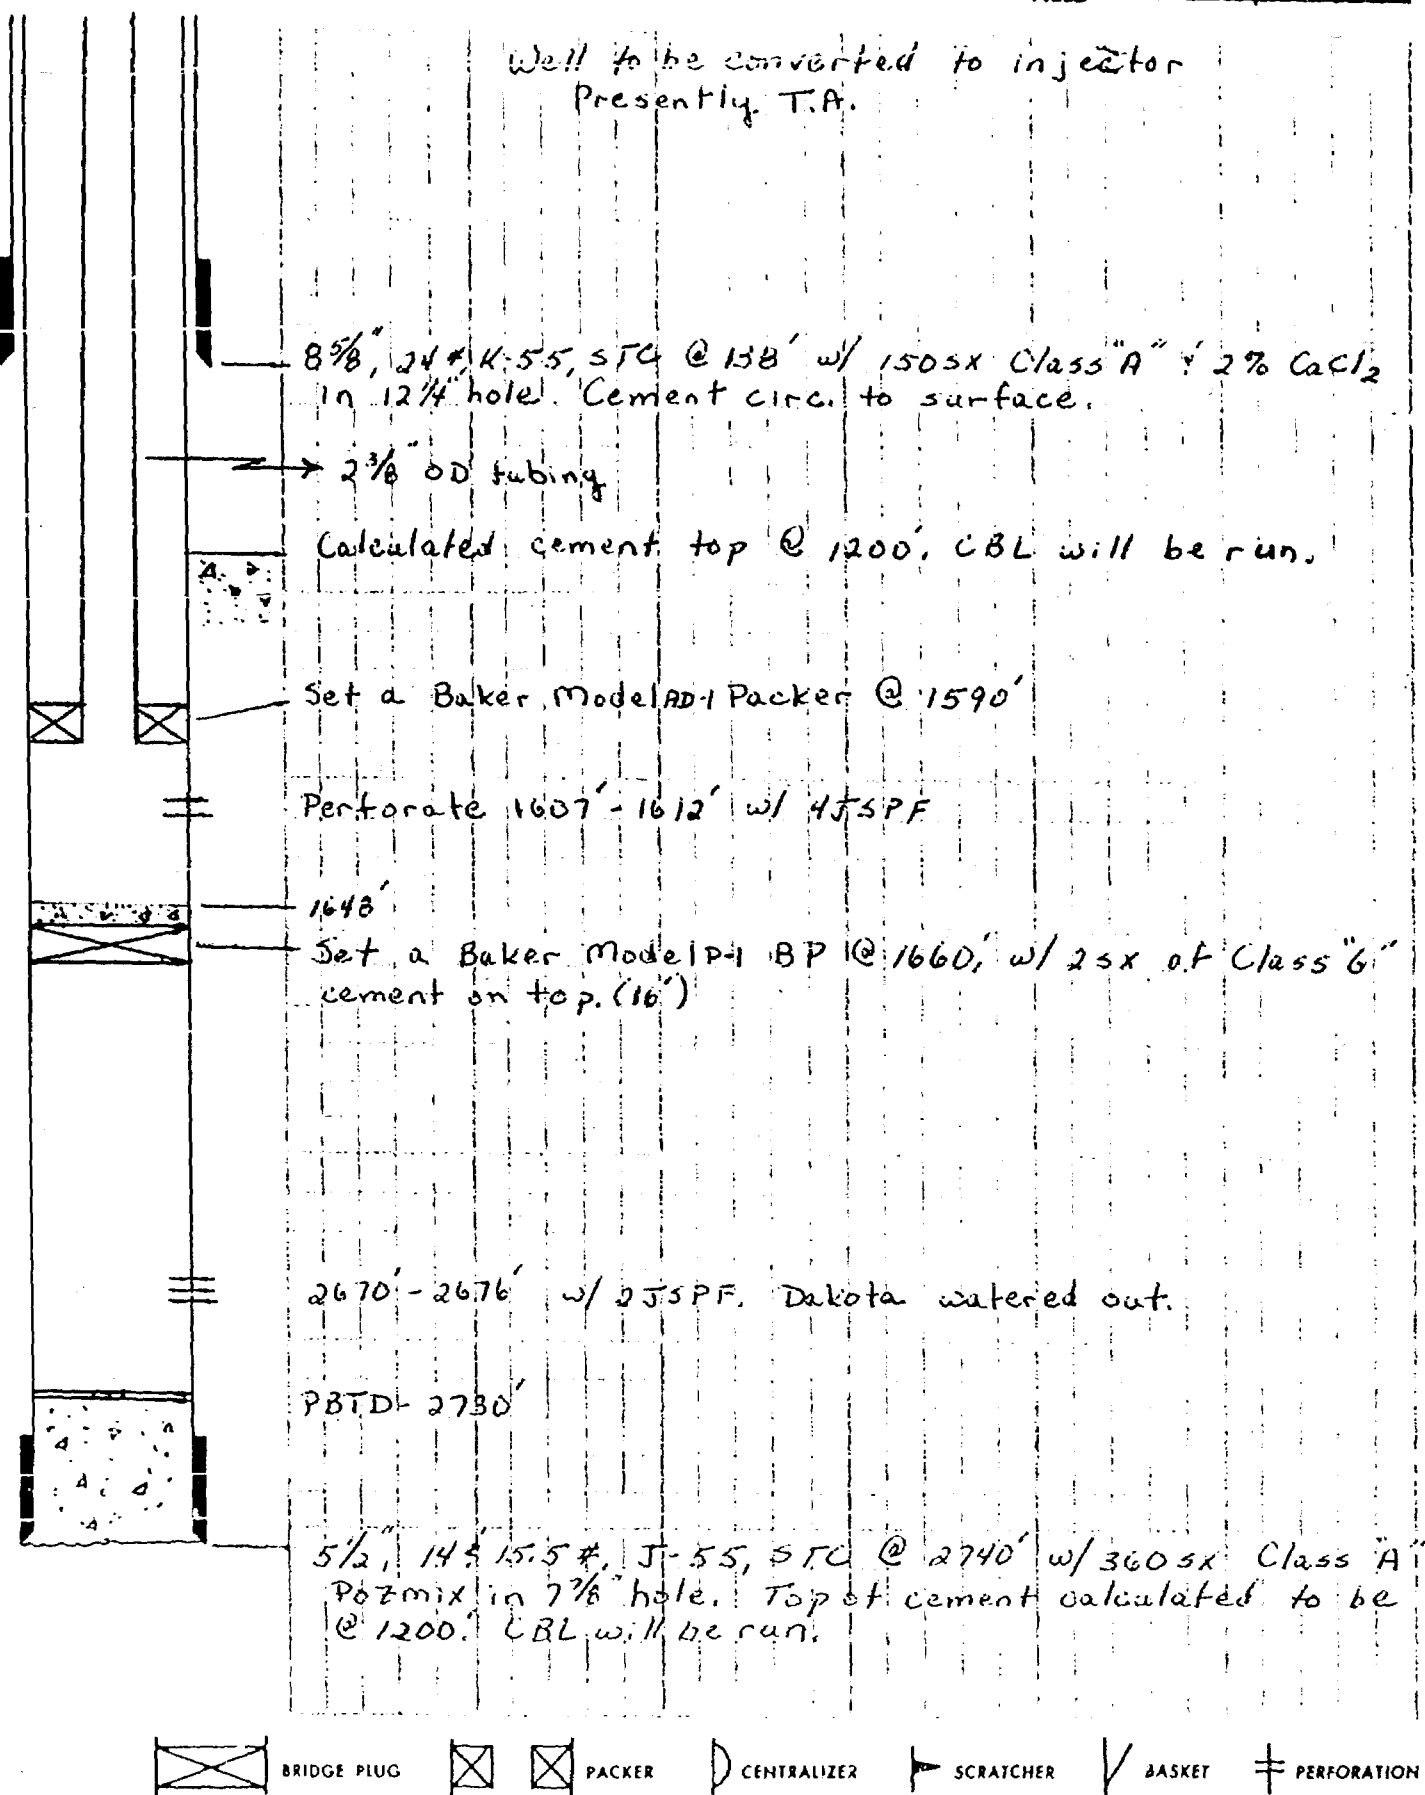 Well to be converted to injector
Presently T.A.
8 5/8", 24#, K-55, STC @ 138' w/ 150sx Class "A" & 2% CaCl2
in 12 1/4" hole. Cement circ. to surface.
2 3/8" OD tubing
Calculated cement top @ 1200'. CBL will be run.
Set a Baker Model AD-1 Packer @ 1590'
Perforate 1607'-1612' w/ 4JSPF
1648'
Set a Baker Model P-1 BP @ 1660', w/ 2sx of Class "G"
cement on top. (16')
2670'-2676' w/ 2JSPF. Dakota watered out.
PBTD- 2730'
5 1/2", 14 & 15.5#, J-55, STC @ 2740' w/ 360sx Class "A"
Pozmix in 7 7/8" hole. Top of cement calculated to be
@ 1200'. CBL will be run.
BRIDGE PLUG PACKER CENTRALIZER SCRATCHER BASKET PERFORATION